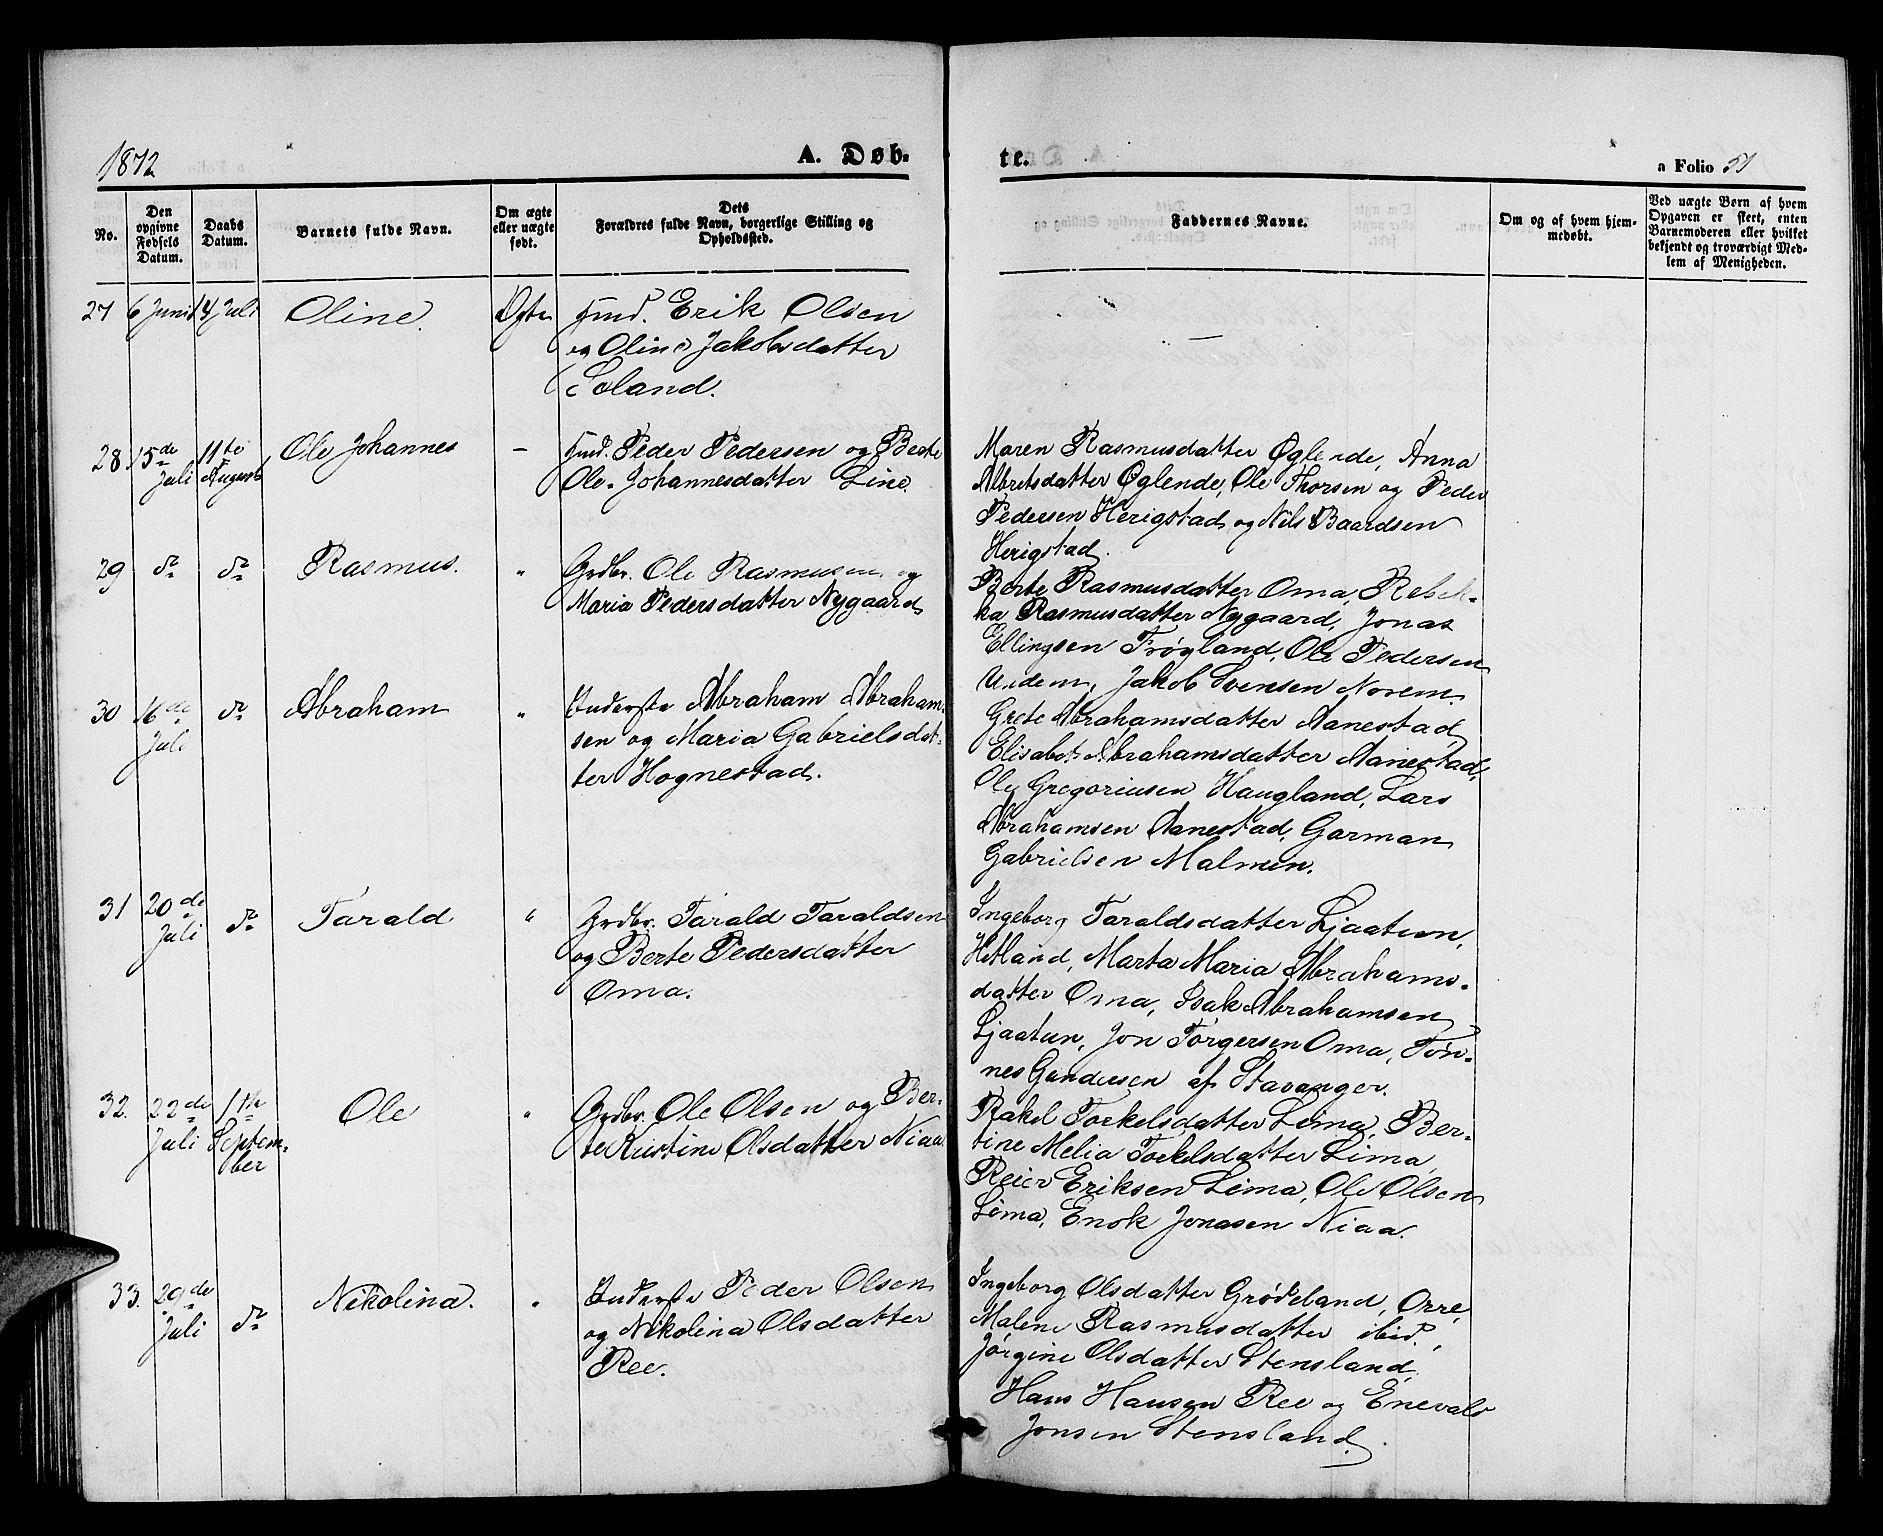 1872
A. Døb-
te.
a Folio 51
No.
Den opgivne Fødsels Datum.
Daabs Datum.
Barnets fulde Navn.
Om ægte eller uægte født.
Dets
Forældres fulde Navn, borgerlige Stilling og
Opholdssted.
Faddernes Navne.
Om og af hvem hjem-
medøbt.
Ved uægte Børn af hvem
Opgaven er skeet, enten
Barnemoderen eller hvilket
bekjendt og troværdigt Med-
lem af Menigheden.
27 6 Juni 14 Juli Oline. Ægte Erik Olsen
og Oline Jakobsdatter
Soland.
—
28 15de Juli 11te August Ole Johannes — Peder Pedersen og Berte
Ole-Johannesdatter Line.
Maren Rasmusdatter Øglende, Anna
Albretsdatter Øglende, Ole Thorsen og Peder
Pedersen Herigstad og Nils Baardsen
Herigstad.
29 do do Rasmus. " Grdbr. Ole Rasmusen og
Maria Pedersdatter Nygaard
Berte Rasmusdatter Oma, Rebek-
ka Rasmusdatter Nygaard, Jonas
Ellingsen Frøgland, Ole Pedersen
Undem, Jakob Svensen Norem.
30 16de Juli do Abraham " Inderste Abraham Abraham-
sen og Maria Gabrielsdat-
ter Hognestad.
Grete Abrahamsdatter Aanestad,
Elisabet Abrahamsdatter Aanestad,
Ole Gregoriusen Haugland, Lars
Abrahamsen Aanestad, Garman
Gabrielsen Malmin.
31 20de Juli do Tarald " Grdbr. Tarald Taraldsen
og Berte Pedersdatter
Oma.
Ingeborg Taraldsdatter Ljaatun,
Hetland, Marta Maria Abrahams-
datter Oma, Isak Abrahamsen
Ljaatun, Jon Torgersen Oma, Tøn-
nes Gundersen af Stavanger.
32. 22de Juli 1ste Septem-
ber Ole " Grdbr. Ole Olsen og Ber-
te Kristine Olsdatter Niaa
Rakel Torkelsdatter Lima, Ber-
tine Melia Torkelsdatter Lima,
Reier Eriksen Lima, Ole Olsen
Lima, Enok Jonasen Niaa.
33. 29de Juli do Nikolina. " Inderste Peder Olsen
og Nikolina Olsdatter
Ree.
Ingeborg Olsdatter Grødeland, Orre,
Malene Rasmusdatter ibid,
Jørgine Olsdatter Stensland,
Hans Hansen Ree og Enevald
Jonsen Stensland.